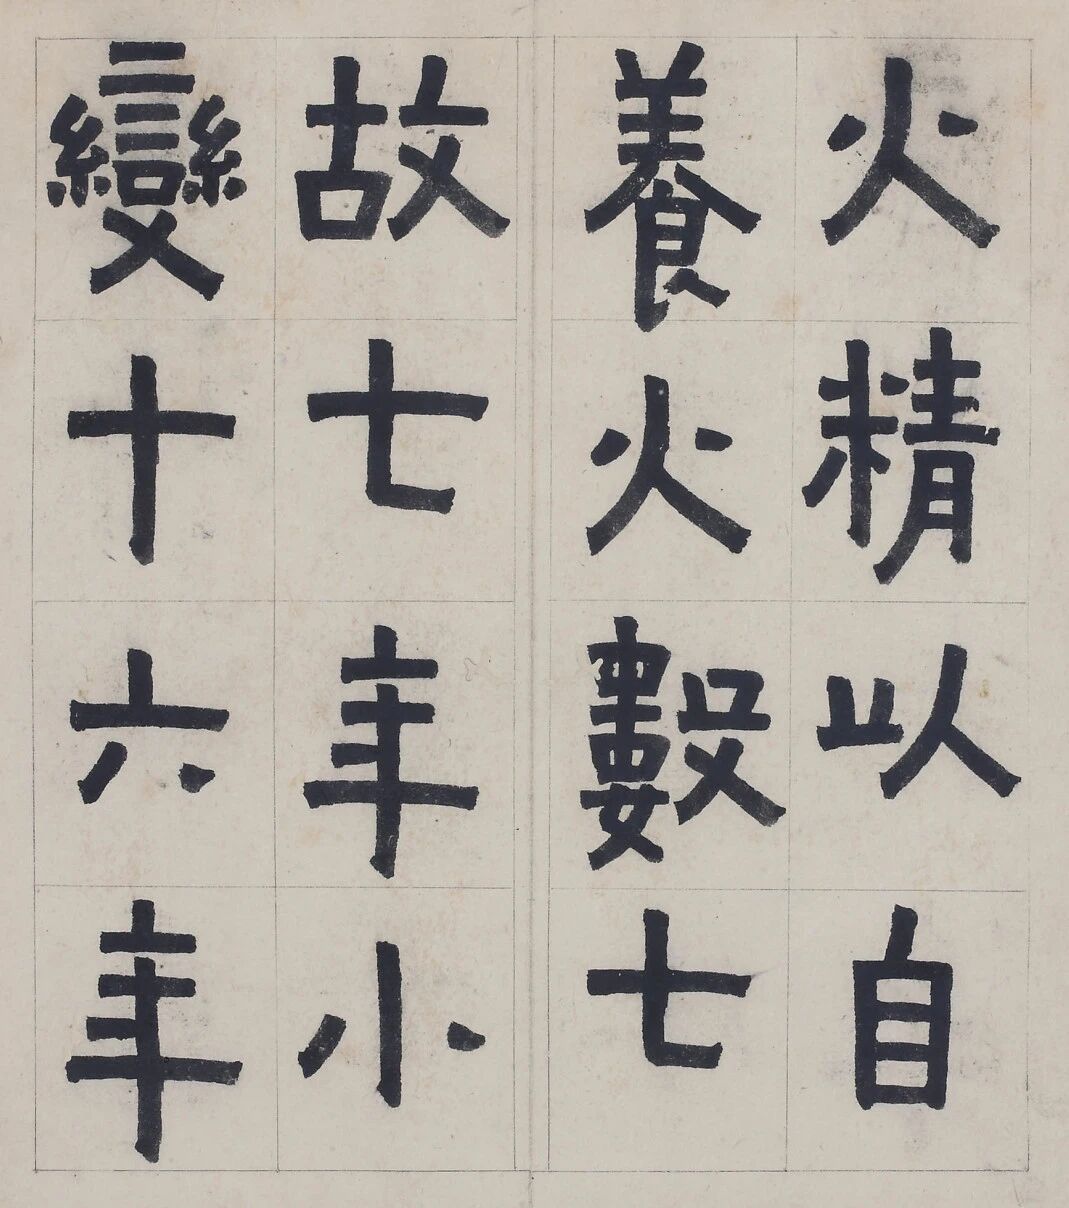 火精以自
養火數七
故七年小
變十六年